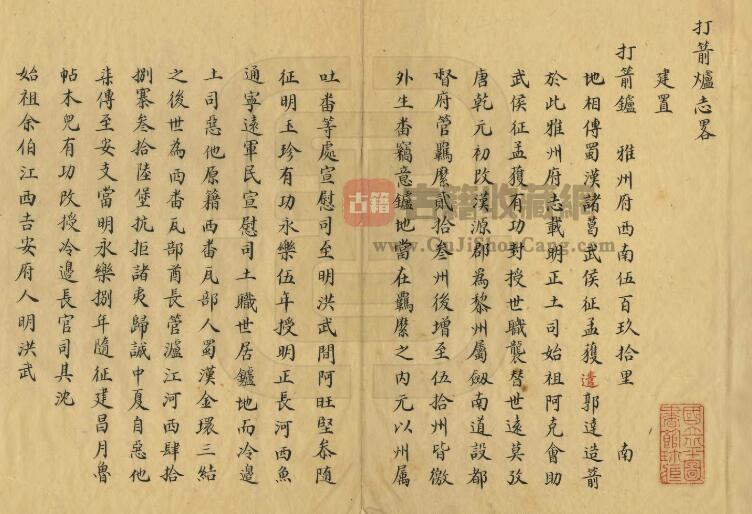 打箭爐志畧
建置
打箭鑪 雅州府西南伍百玖拾里 南
地相傳蜀漢諸葛武侯征孟獲遣郭達造箭
於此雅州府志載明正土司始祖阿克會助
武侯征孟獲有功封授世職襲替世遠莫攷
唐乾元初改漢源郡為黎州屬劔南道設都
督府管羈縻貳拾叁州後增至伍拾州皆徼
外生番竊意鑪地當在羈縻之內元以州屬
吐番等處宣慰司至明洪武間阿旺堅叅随
征明玉珍有功永樂伍年授明正長河西魚
通寧遠軍民宣慰司土職世居鑪地而冷邊
土司惡他原籍西番瓦部人蜀漢金環三結
之後世為西番瓦部酋長管瀘江河西肆拾
捌寨叁拾陸堡抗拒諸夷歸誠中夏自惡他
柒傳至安支當明永樂捌年隨征建昌月魯
帖木兒有功改授冷邊長官司其沈
始祖余伯江西吉安府人明洪武
古籍
古籍收藏網
www.GuJiShouCang.com